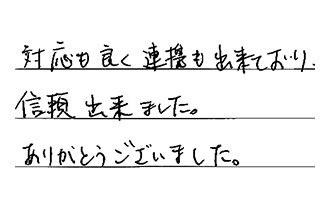 対応も良く連携も出来ており、
信頼出来ました。
ありがとうございました。